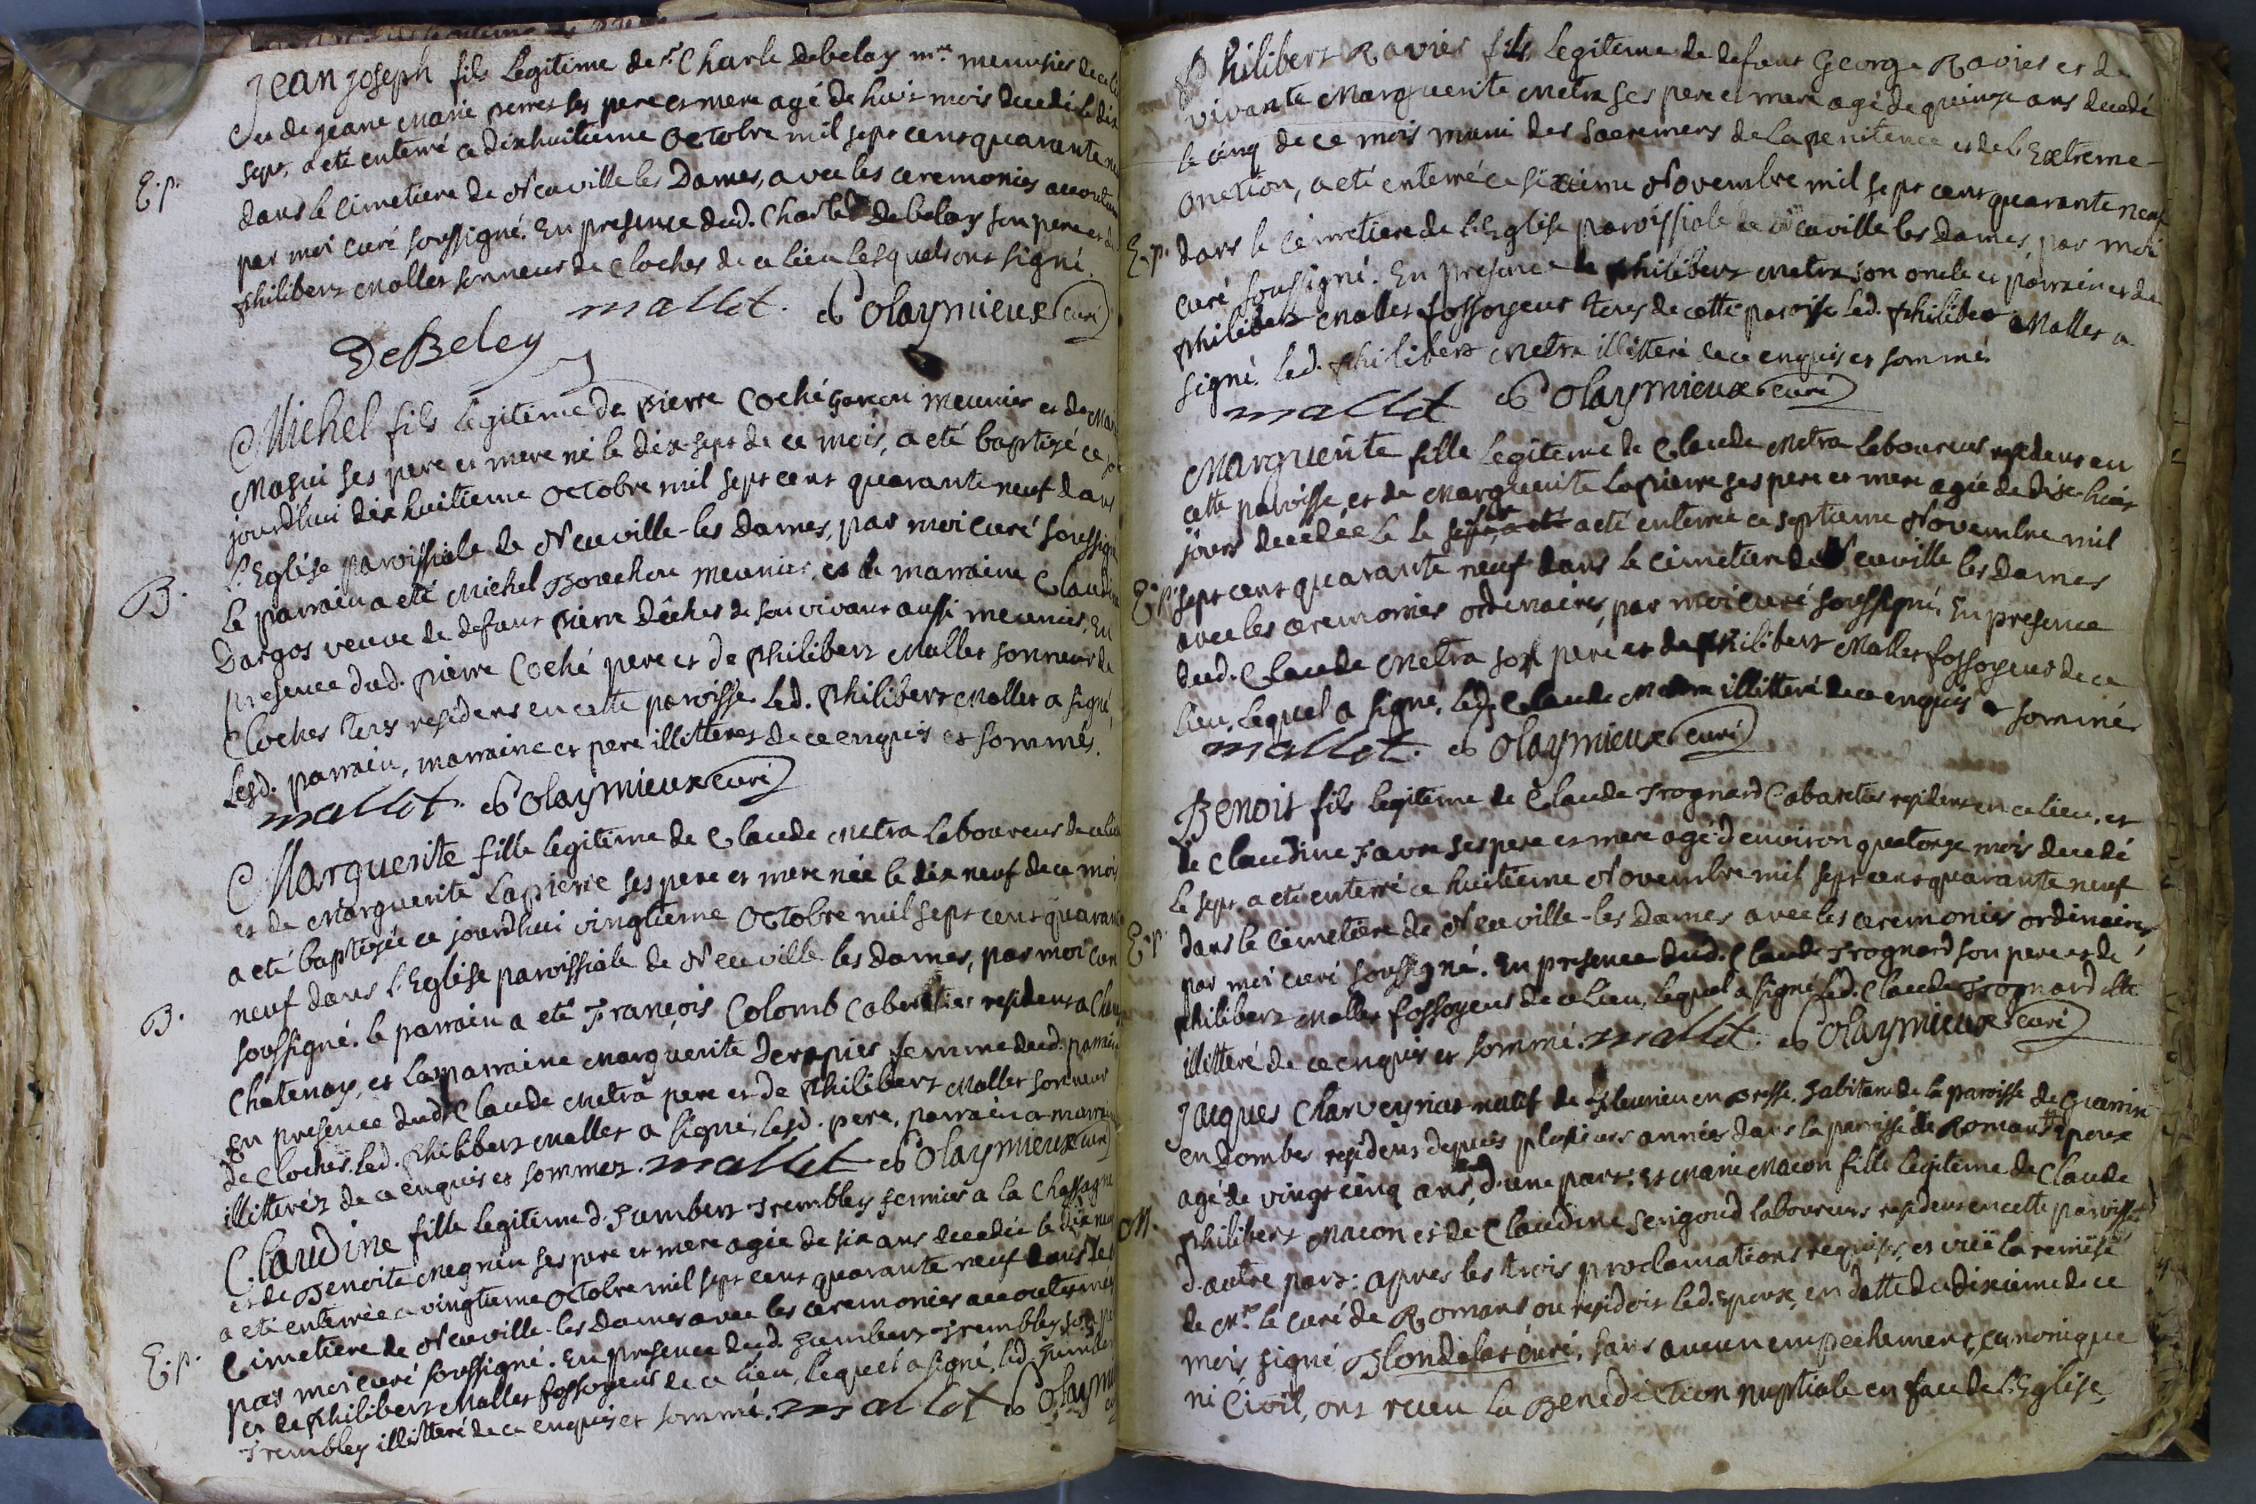 Jean Joseph fils Legitime de sr. Charle Debelay me. menusier de ce lieu
et de geane Marie perret ses pere et mere agé de huit mois decedé le dix
sept, a eté enterré ce dixhuitieme Octobre mil sept cent quarante neuf
E.p.
dans le Cimetiere de Neuville les Dames, avec les ceremonies accoutumées
par moi curé soussigné. En presence dud. Charle Debelay son pere et de
philibert Mallet sonneur de Cloches de ce lieu lesquels ont signé.
DeBeley mallet. Polaymieux curé
Michel fils Legitime de pierre Coché garcon meunier et de Marie
ses pere et mere né le dix-sept de ce mois, a eté baptizé ce
jourdhui dixhuitieme Octobre mil sept cent quarante neuf dans
l'Eglise paroissiale de Neuville-les Dames, par moi curé soussigné
B.
le parrain a eté Michel Bouchou meunier, et la marraine Claudine
Dargos veuve de defunt pierre Dêches de son vivant aussi meunier. En
presence dud. pierre Coché pere et de philibert Mallet sonneur de
Cloches tous residens en cette paroisse. Led. philibert Mallet a signé,
Lesd. parrain, marraine et pere illitterez de ce enquis et sommés.
mallet. Polaymieux curé
Marguerite fille legitime de Claude Metra laboureur de ce lieu
et de Marguerite Lapierre ses pere et mere née le dix neuf de ce mois
a eté baptizée ce jourdhui vingtieme Octobre mil sept cent quarante
neuf dans l'Eglise paroissiale de Neuville les Dames, par moi curé
B.
soussigné. le parrain a eté François Colomb Cabaretier resident a
Chatenay, et la marraine Marguerite Derapier femme dud. parrain
En presence dud. Claude Metra pere et de philibert Mallet sonneur
de Cloches. Led. philibert Mallet a signé, lesd. pere, parrain et marraine
illitterez de ce enquis et sommez. mallet Polaymieux curé
Claudine fille legitime d'humbert Trembley fermier a la Chassagne
et de Benoite Megnin ses pere et mere agée de six ans decedée le dix neuf
a eté enterrée ce vingtieme Octobre mil sept cent quarante neuf dans le
E.p.
Cimetiere de Neuville-les Dames avec les ceremonies accoutumées
par moi curé soussigné. En presence dud. humbert Trembley son pere
et de philibert Mallet fossoyeur de ce lieu, lequel a signé, led. humbert
Trembley illitteré de ce enquis et sommé. mallet Polaymieux
Philibert Ravier fils Legitime de defunt George Ravier et de
vivante Marguerite Metra ses pere et mere agé de quinze ans decedé
le cinq de ce mois muni des Sacremens de la penitence et de l'Extreme-
Onction, a eté enterré ce sixieme Novembre mil sept cent quarante neuf
E.p.
dans le Cimetiere de l'Eglise paroissiale de Neuville les Dames, par moi
curé soussigné. En presence de philibert Metra son oncle et parrain et de
philibert Mallet fossoyeur tous de cette paroisse led. philibert Mallet a
signé. led. philibert Metra illitteré de ce enquis et sommé.
mallet Polaymieux curé
Marguerite fille Legitime de Claude Metra laboureur resident en
cette paroisse, et de Marguerite Lapierre ses pere et mere agée de dix-huit
jours decedée le le six a eté a eté enterrée ce septieme Novembre mil
E.p.
sept cent quarante neuf dans le cimetiere de Neuville les Dames
avec les ceremonies ordinaires, par moi curé soussigné. En presence
dud. Claude Metra son pere et de philibert Mallet fossoyeur de ce
lieu, lequel a signé, led. Claude Metra illitteré de ce enquis et sommé
mallet. Polaymieux curé
Benoit fils legitime de Claude Trognard Cabaretier resident en ce lieu, et
de Claudine Favre ses pere et mere agé d'environ quatorze mois decedé
le sept, a eté enterré ce huitieme Novembre mil sept cent quarante neuf
E.p.
dans le Cimetiere de Neuville-les Dames avec les ceremonies ordinaires
par moi curé soussigné. En presence dud. Claude Trognard son pere et de
philibert Mallet fossoyeur de ce lieu, lequel a signé, led. Claude Trognard
illitteré de ce enquis et sommé. mallet. Polaymieux curé
Jacques Charveyriat natif de Fleurieu en Bresse, habitant de la paroisse de
en Dombes resident depuis plusieurs années dans la paroisse de Romans Epoux
agé de vingt cinq ans, d'une part: et Marie Macon fille legitime de Claude
M.
philibert Macon et de Claudine Serigoud laboureurs residens en cette paroisse
d'autre part: apres les trois proclamations requises, et vuë la remise
de Mr. le curé de Romans, ou residoit led. Epoux, en datte du dixieme de ce
mois signé Blondelat curé, sans aucun empechement, canonique
ni Civil, ont receu la Benediction nuptiale en face de l'Eglise,